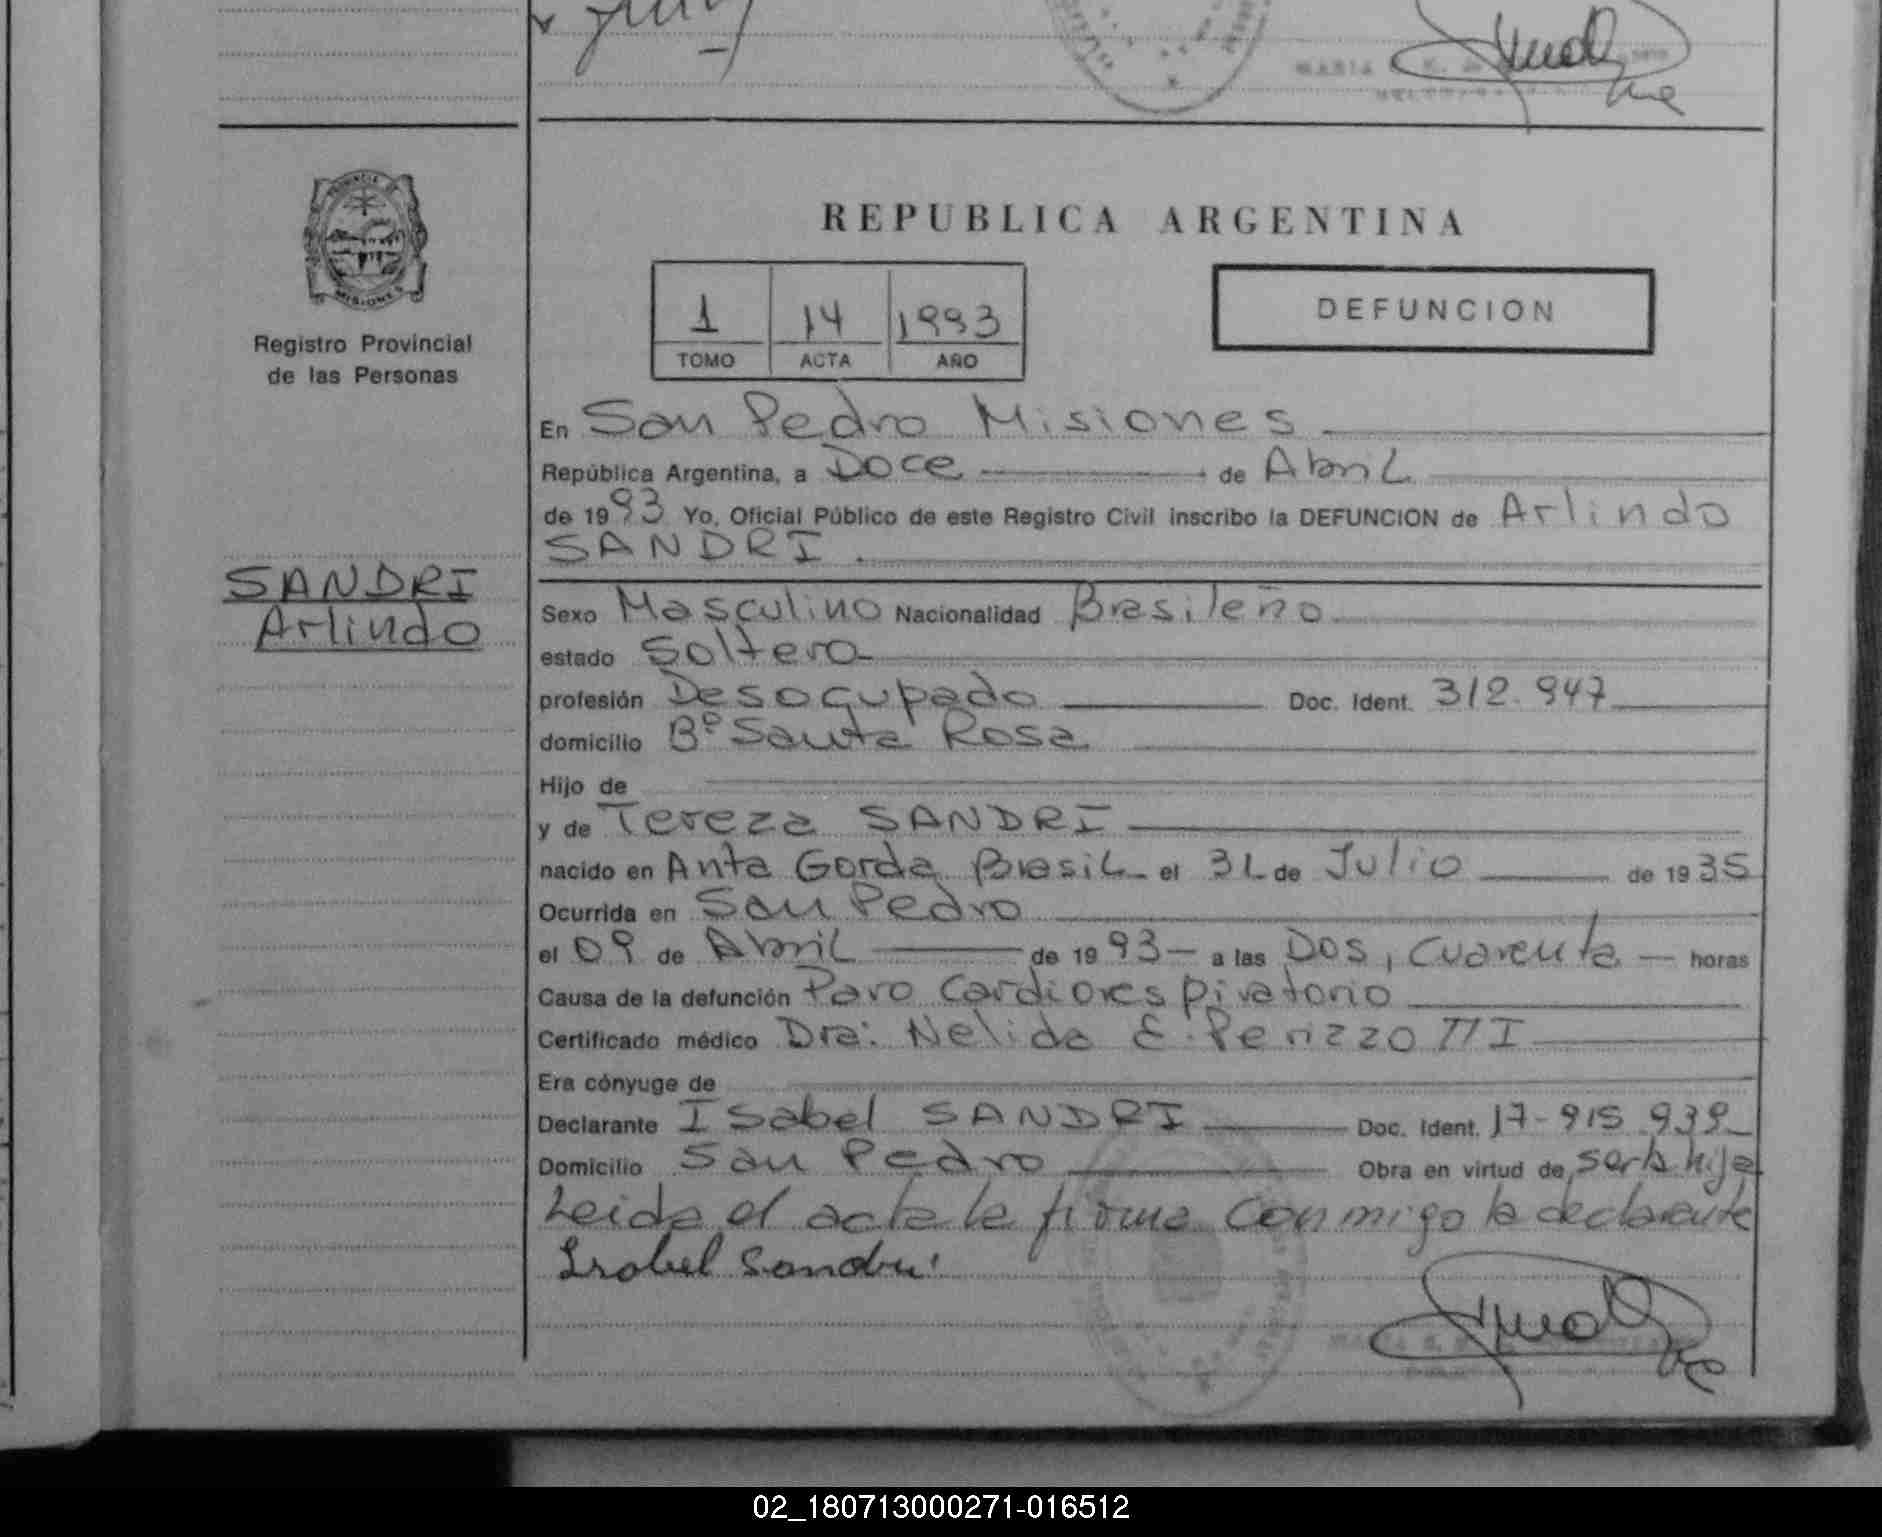 PROVINCIA DE
MISIONES
Registro Provincial
de las Personas
SANDRI
Arlindo
REPUBLICA ARGENTINA
1 14 1993
TOMO ACTA AÑO
DEFUNCION
En San Pedro Misiones
República Argentina, a Doce de Abril
de 1993 Yo, Oficial Público de este Registro Civil inscribo la DEFUNCION de Arlindo
SANDRI.
Sexo Masculino Nacionalidad Brasileño
estado Soltero
profesión Desocupado Doc. Ident. 312.947
domicilio Bº Santa Rosa
Hijo de
y de Tereza SANDRI
nacido en Anta Gorda Brasil el 31 de Julio de 1935
Ocurrida en San Pedro
el 09 de Abril de 1993 a las Dos, Cuarenta horas
Causa de la defunción Paro Cardiorespiratorio
Certificado médico Dra: Nelida E. Perizzotti
Era cónyuge de
Declarante Isabel SANDRI Doc. Ident. 17-915.939
Domicilio San Pedro Obra en virtud de ser la hija
Leida el acta la firma conmigo la declarante
Isabel Sandri
02_180713000271-016512